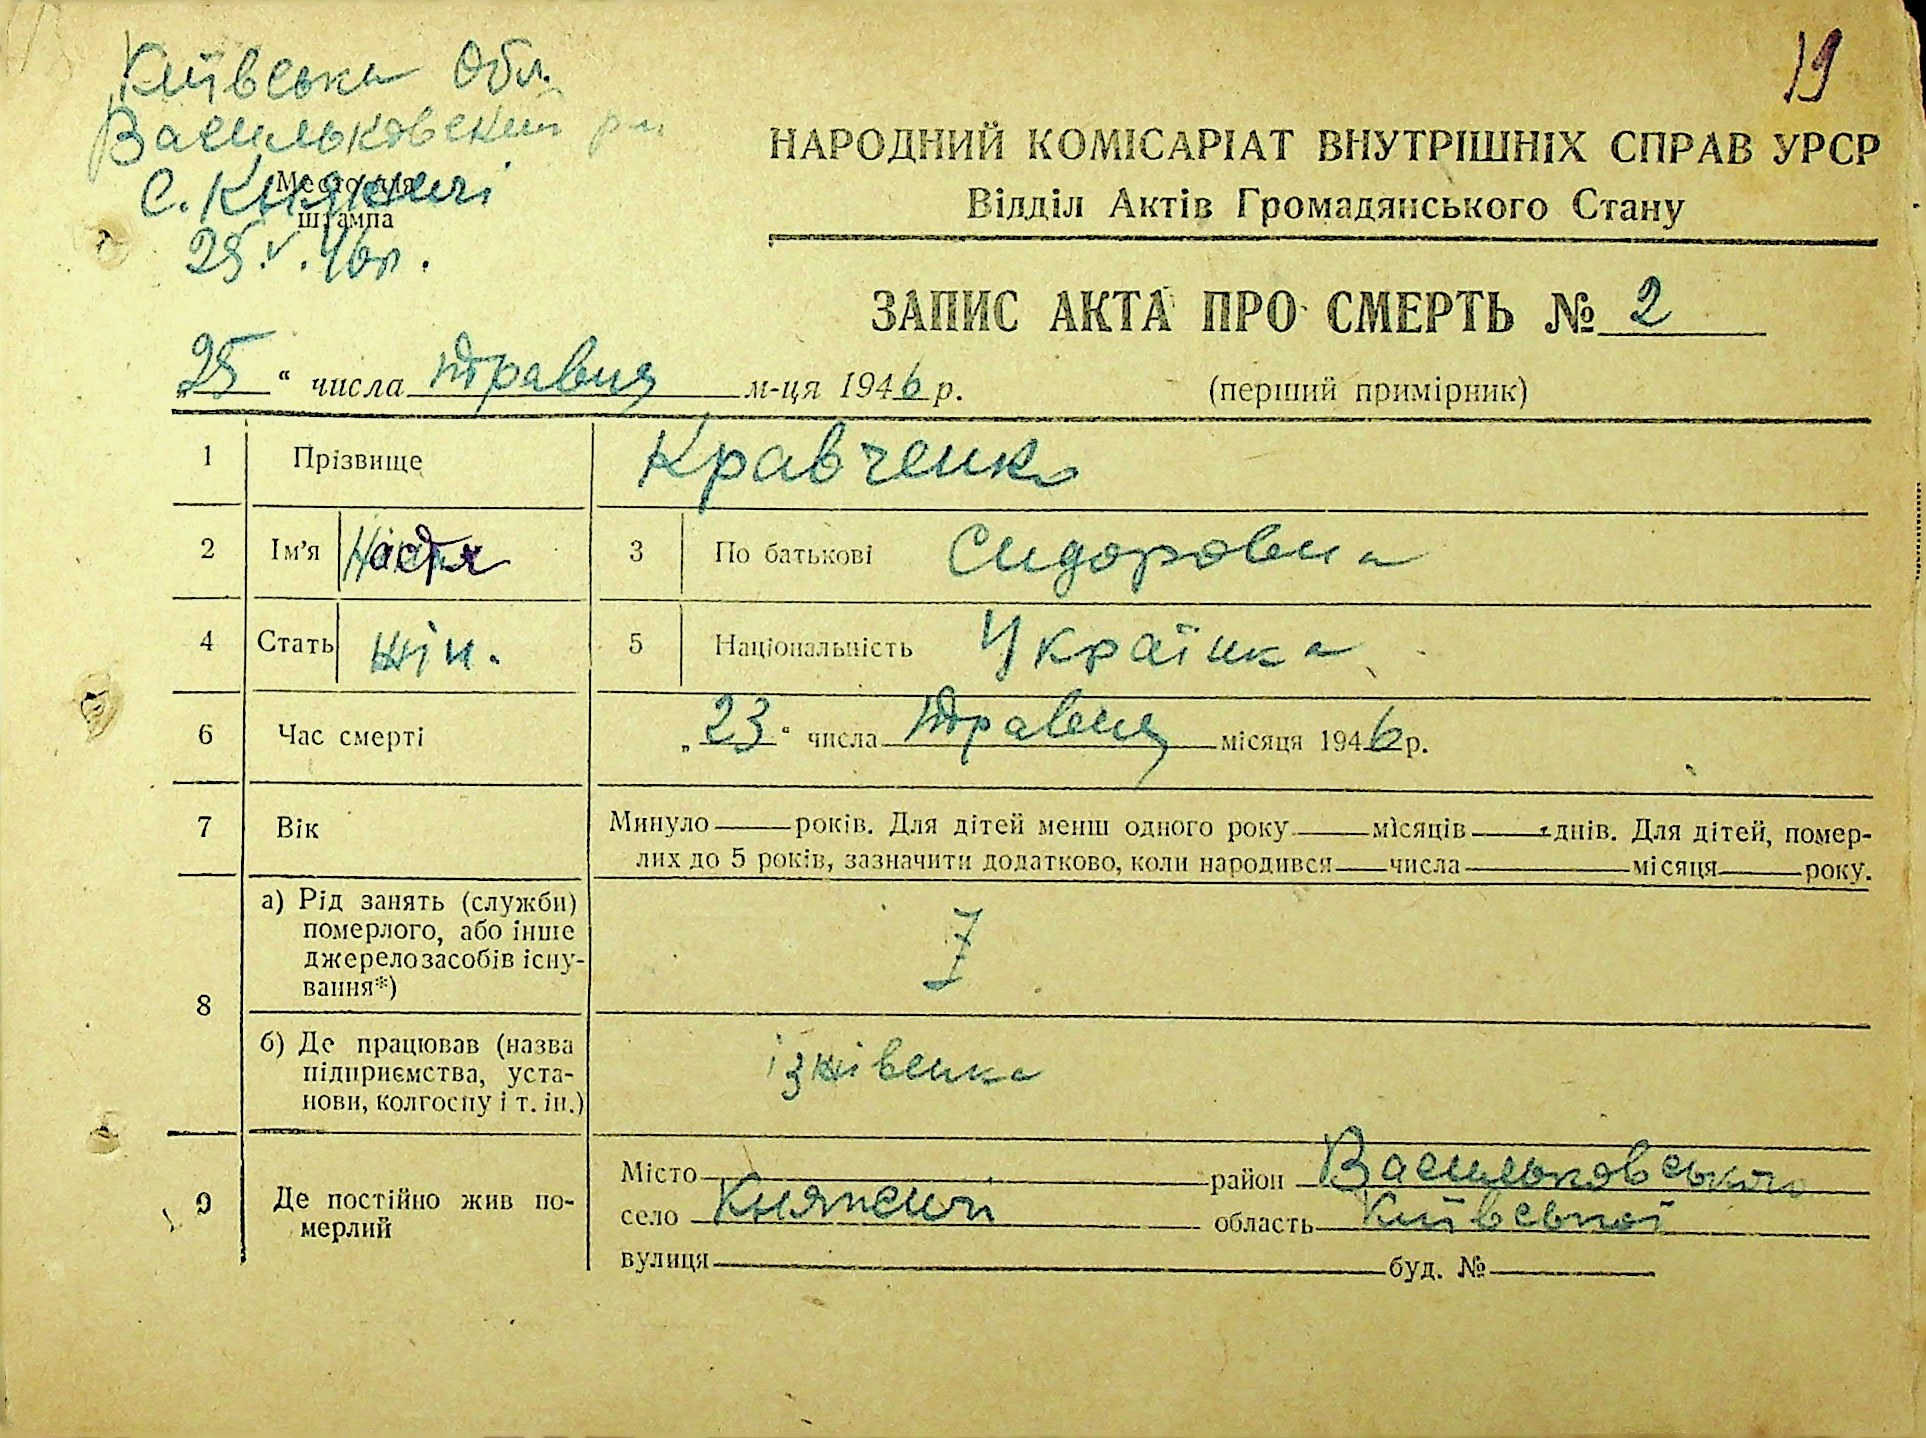 19
Київська Обл.
Васильковский р-н
Место для
с. Княжичі
штампа
25.V.46р.
НАРОДНИЙ КОМІСАРІАТ ВНУТРІШНІХ СПРАВ УРСР
Відділ Актів Громадянського Стану
ЗАПИС АКТА ПРО СМЕРТЬ № 2
„25“ числа травня м-ця 1946 р. (перший примірник)
1 Прізвище Кравченко
2 Ім’я Настя 3 По батькові Сидоровна
4 Стать жін. 5 Національність Українка
6 Час смерті „23“ числа травня місяця 1946 р.
7 Вік Минуло — років. Для дітей менш одного року — місяців — днів. Для дітей, помер-
лих до 5 років, зазначити додатково, коли народився — числа — місяця — року.
8 а) Рід занять (служби)
померлого, або інше
джерело засобів існу-
вання*)
б) Де працював (назва
підприємства, уста-
нови, колгоспу і т. ін.)
ізжівенка
9 Де постійно жив по-
мерлий
Місто — район Васильковського
село Княжичі область Київської
вулиця — буд. № —